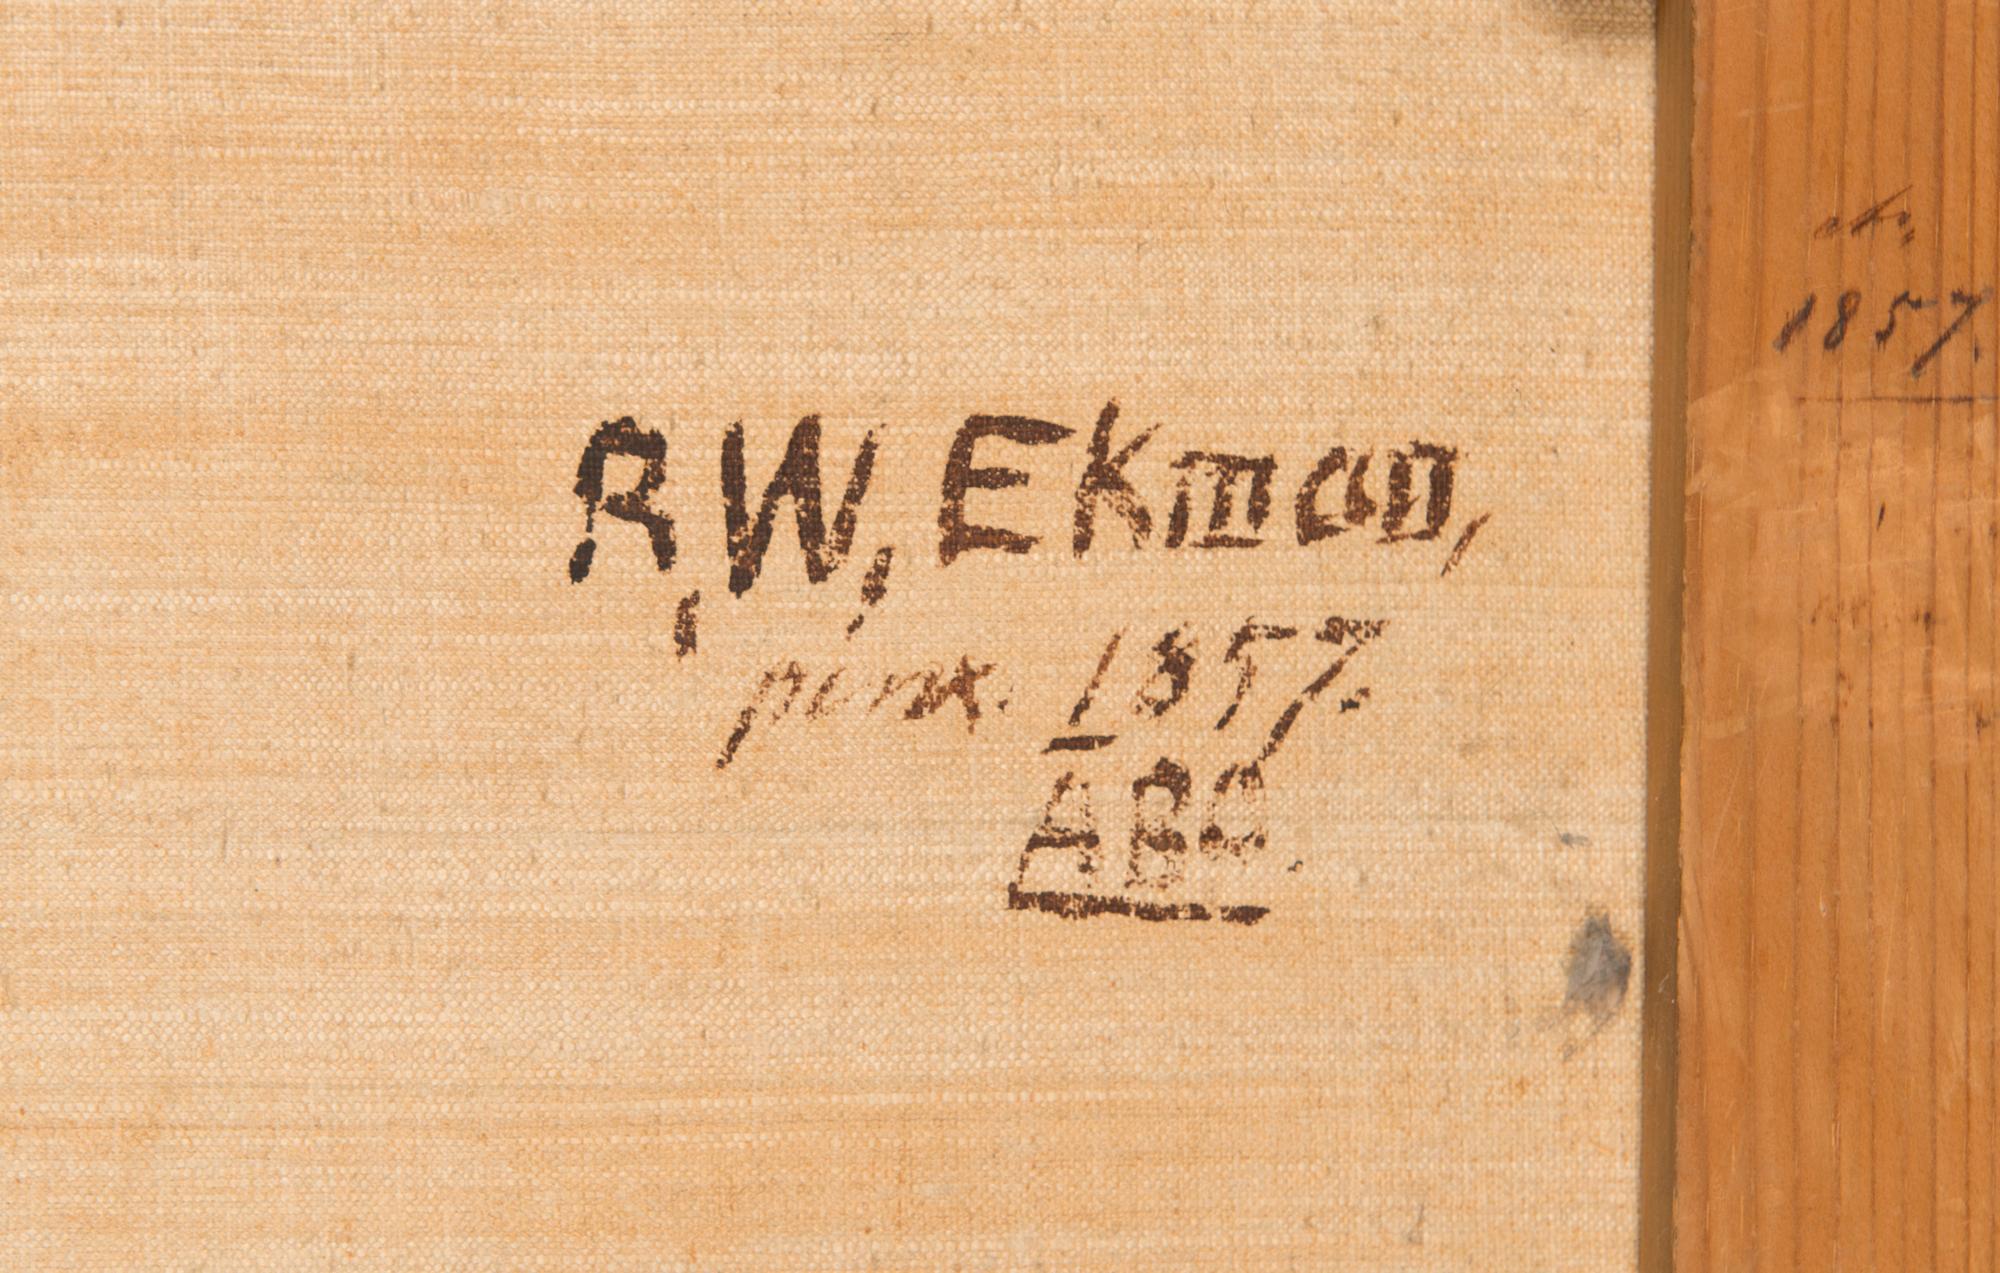 R, W, Ekman,
pinx. 1857.
ABO.
1857.